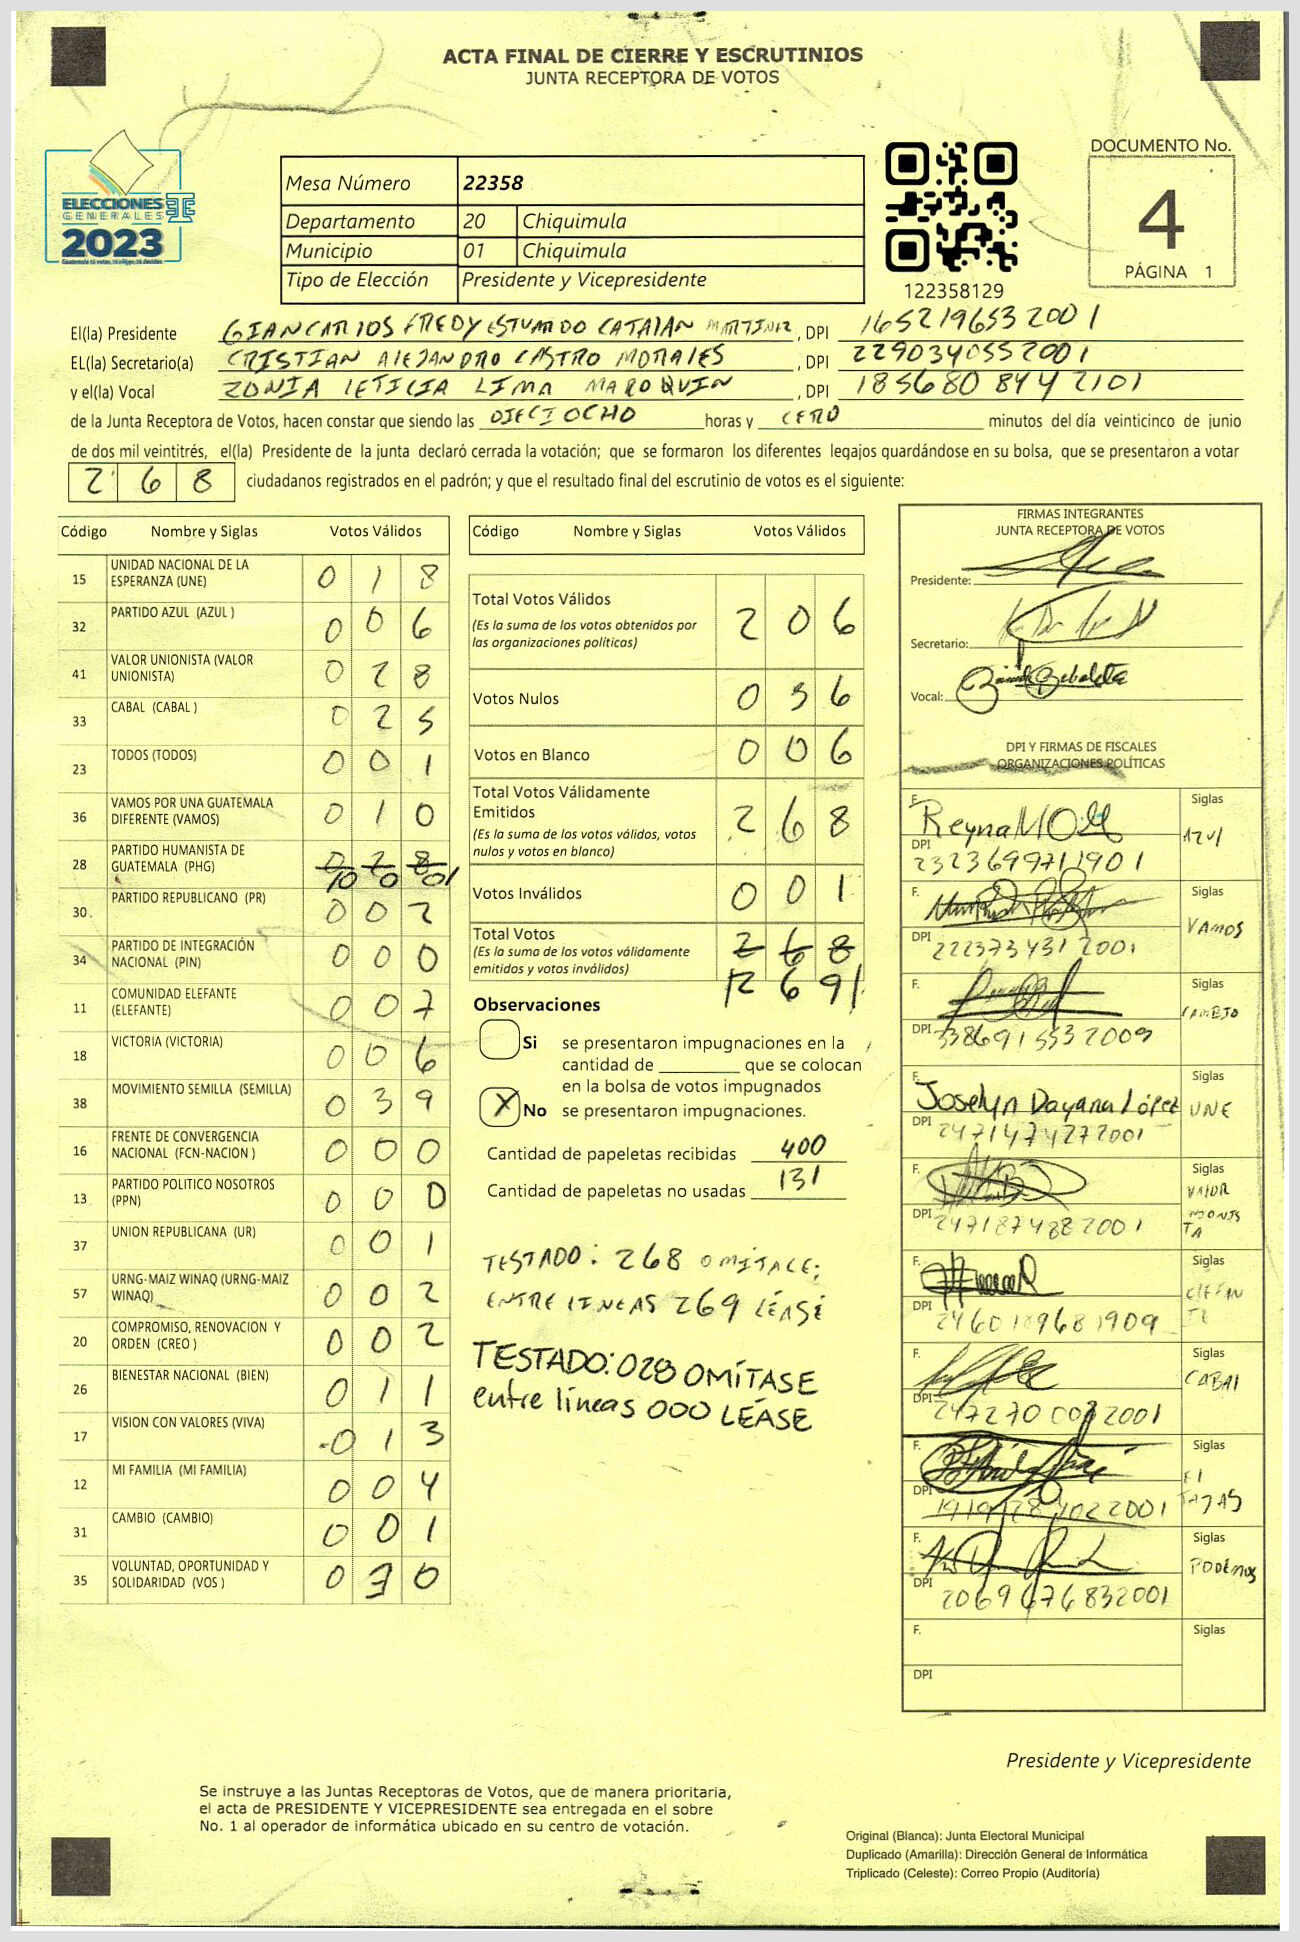 ACTA FINAL DE CIERRE Y ESCRUTINIOS
JUNTA RECEPTORA DE VOTOS
ELECCIONES
GENERALES
2023
Mesa Número 22358
Departamento 20 Chiquimula
Municipio 01 Chiquimula
Tipo de Elección Presidente y Vicepresidente
122358129
DOCUMENTO No.
4
PÁGINA 1
El(la) Presidente GIANCARLOS FREDY ESTUARDO CATALAN MARTINEZ, DPI 1652196532001
EL(la) Secretario(a) CRISTIAN ALEJANDRO CASTRO MORALES, DPI 2290340552001
y el(la) Vocal ZONIA LETICIA LIMA MAROQUIN, DPI 1856808442101
de la Junta Receptora de Votos, hacen constar que siendo las DIECIOCHO horas y CERO minutos del día veinticinco de junio
de dos mil veintitrés, el(la) Presidente de la junta declaró cerrada la votación; que se formaron los diferentes legajos guardándose en su bolsa, que se presentaron a votar
268 ciudadanos registrados en el padrón; y que el resultado final del escrutinio de votos es el siguiente:
Código Nombre y Siglas Votos Válidos
15 UNIDAD NACIONAL DE LA ESPERANZA (UNE) 018
32 PARTIDO AZUL (AZUL ) 006
41 VALOR UNIONISTA (VALOR UNIONISTA) 028
33 CABAL (CABAL ) 025
23 TODOS (TODOS) 001
36 VAMOS POR UNA GUATEMALA DIFERENTE (VAMOS) 010
28 PARTIDO HUMANISTA DE GUATEMALA (PHG) 028 /000/
30 PARTIDO REPUBLICANO (PR) 002
34 PARTIDO DE INTEGRACIÓN NACIONAL (PIN) 000
11 COMUNIDAD ELEFANTE (ELEFANTE) 007
18 VICTORIA (VICTORIA) 006
38 MOVIMIENTO SEMILLA (SEMILLA) 039
16 FRENTE DE CONVERGENCIA NACIONAL (FCN-NACION ) 000
13 PARTIDO POLITICO NOSOTROS (PPN) 000
37 UNION REPUBLICANA (UR) 001
57 URNG-MAIZ WINAQ (URNG-MAIZ WINAQ) 002
20 COMPROMISO, RENOVACION Y ORDEN (CREO ) 002
26 BIENESTAR NACIONAL (BIEN) 011
17 VISION CON VALORES (VIVA) 013
12 MI FAMILIA (MI FAMILIA) 004
31 CAMBIO (CAMBIO) 001
35 VOLUNTAD, OPORTUNIDAD Y SOLIDARIDAD (VOS ) 030
Código Nombre y Siglas Votos Válidos
Total Votos Válidos 206
(Es la suma de los votos obtenidos por
las organizaciones políticas)
Votos Nulos 036
 Votos en Blanco 006
Total Votos Válidamente
Emitidos 268
(Es la suma de los votos válidos, votos
nulos y votos en blanco)
Votos Inválidos 001
Total Votos 268
(Es la suma de los votos válidamente
emitidos y votos inválidos)
/269/
Observaciones
Si se presentaron impugnaciones en la
cantidad de ________ que se colocan
en la bolsa de votos impugnados
X No se presentaron impugnaciones.
Cantidad de papeletas recibidas 400
Cantidad de papeletas no usadas 131
TESTADO: 268 OMÍTACE;
ENTRE LINEAS 269 LÉASE
TESTADO: 028 OMÍTASE
entre líneas 000 LÉASE
FIRMAS INTEGRANTES
JUNTA RECEPTORA DE VOTOS
Presidente:
Secretario:
Vocal:
DPI Y FIRMAS DE FISCALES
ORGANIZACIONES POLÍTICAS
F. Reyna Siglas
AZUL
DPI 2323699711901
F. Siglas
VAMOS
DPI 2223734312001
F. Siglas
CAMBIO
DPI 3386915532009
F. Joselyn Dayana López Siglas
UNE
DPI 2471474272001
F. Siglas
VALOR
UNIONIS
TA
DPI 2471874882001
F. Siglas
ELEFAN
TE
DPI 2460189681909
F. Siglas
CABAL
DPI 2472700072001
F. Siglas
DPI
F. Siglas
PODEMOS
DPI 2069676832001
F. Siglas
DPI
Presidente y Vicepresidente
Se instruye a las Juntas Receptoras de Votos, que de manera prioritaria,
el acta de PRESIDENTE Y VICEPRESIDENTE sea entregada en el sobre
No. 1 al operador de informática ubicado en su centro de votación.
Original (Blanca): Junta Electoral Municipal
Duplicado (Amarilla): Dirección General de Informática
Triplicado (Celeste): Correo Propio (Auditoría)